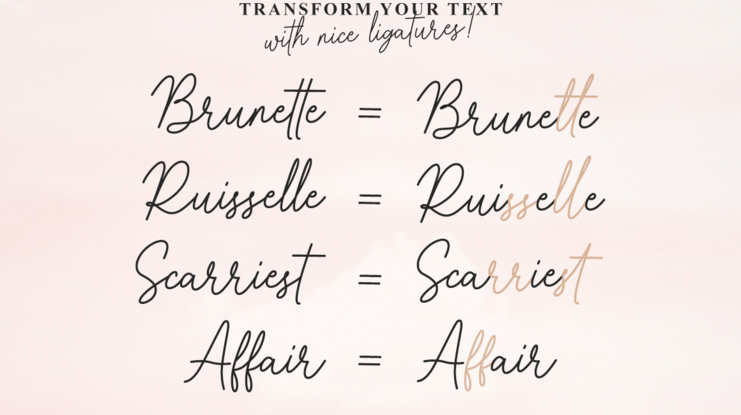 TRANSFORM YOUR TEXT
with nice ligatures!
Brunette = Brunette
Ruisselle = Ruisselle
Scarriest = Scarriest
Affair = Affair